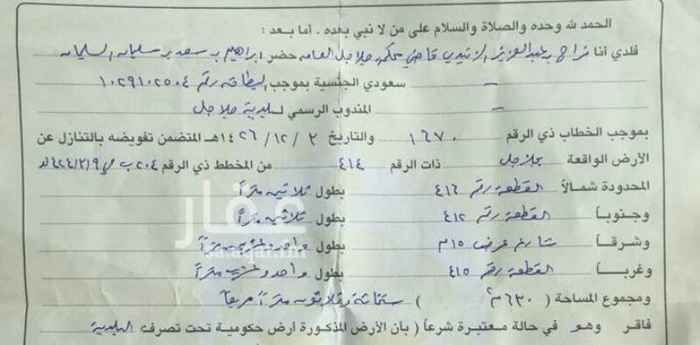 الحمد لله وحده والصلاة والسلام على من لا نبي بعده . أما بعد :
فلدي أنا فراج بن عبدالعزيز الزنيدي قاضي محكمة جلاجل العامة حضر ابراهيم بن سعد بن سليمان السليمان
سعودي الجنسية بموجب البطاقة رقم ١٠٢٩١٠٢٥٠٤
المندوب الرسمي لـ بلدية جلاجل
بموجب الخطاب ذي الرقم ١٦٧٠ والتاريخ ٢ / ١٢ / ١٤٢٦هـ المتضمن تفويضه بالتنازل عن
الأرض الواقعة بجلاجل ذات الرقم ٤١٤ من المخطط ذي الرقم ٢٠٤
المحدودة شمالاً القطعة رقم ٤١٦ بطول ثلاثين متراً
وجنوباً القطعة رقم ٤١٢ بطول ثلاثين متراً
وشرقاً شارع عرض ١٥م بطول واحد وعشرين متراً
وغرباً القطعة رقم ٤١٥ بطول واحد وعشرين متراً
ومجموع المساحة ( ٦٣٠م٢ ) ستمائة وثلاثون متراً مربعاً
فاقر وهو في حالة معتبرة شرعاً ( بأن الأرض المذكورة أرض حكومية تحت تصرف البلدية
عقار
sa.aqar.fm